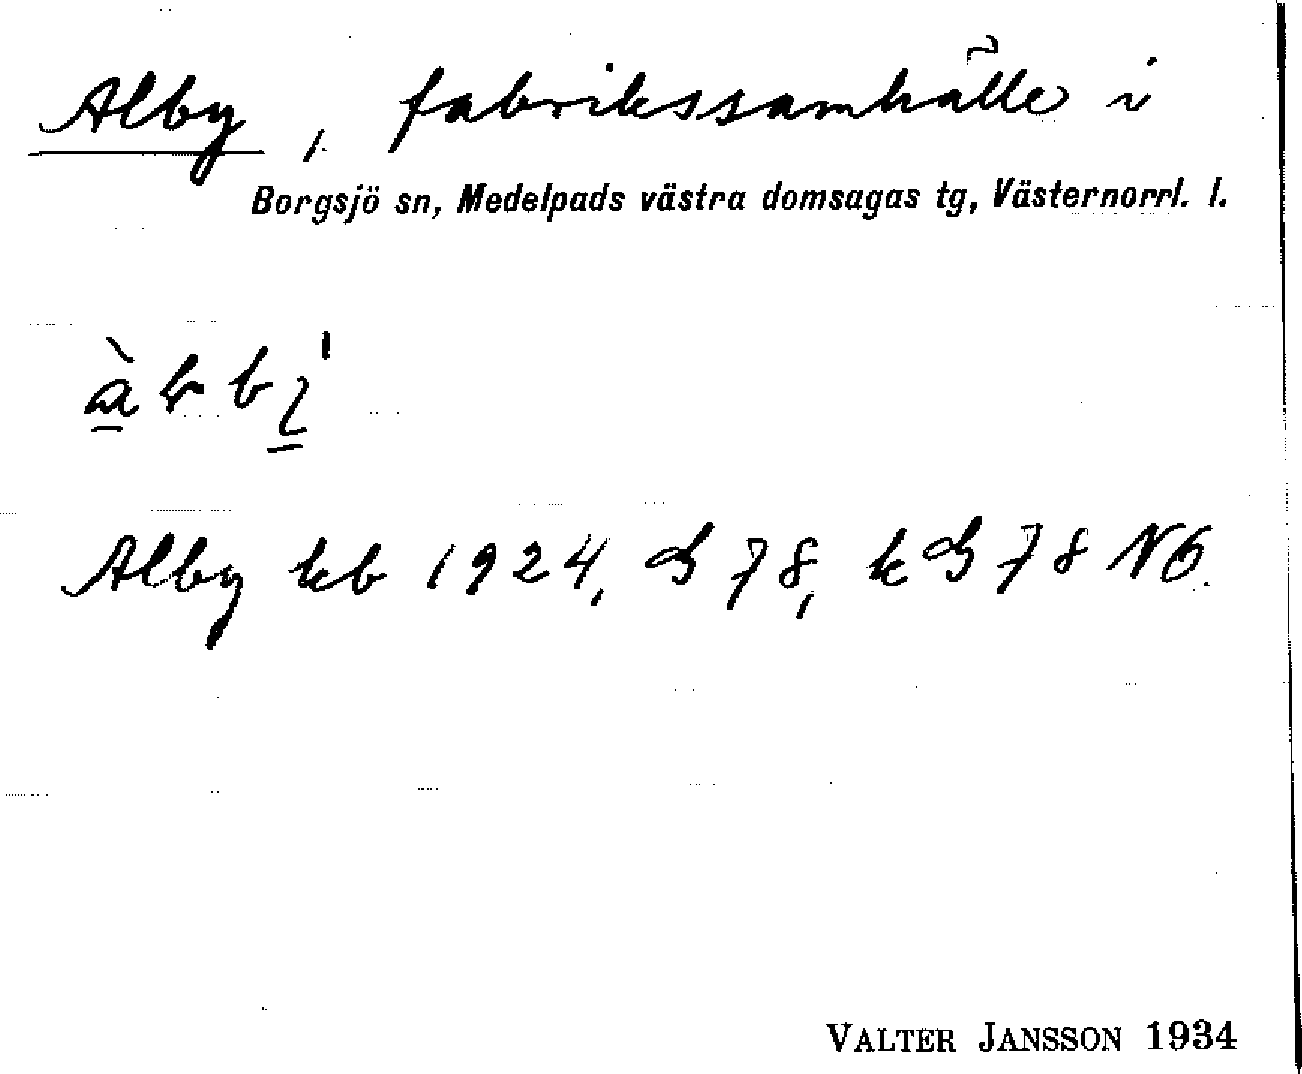 Alby, fabrikssamhälle i
Borgsjö sn, Medelpads västra domsagas tg, Västernorrl. l.
Alby kb 1924, 78, k 78 NO.
VALTER JANSSON 1934